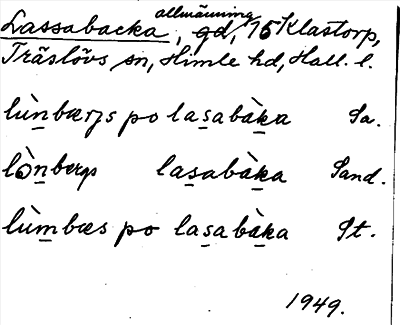 Lassabacka, allmänning gd, 75 Klastorp,
Träslövs sn, Himle hd, Hall. l.
lùn̲bærs po las̲abàk̲a Sa.
lòn̲bergs las̲abàk̲a Sand.
lùm̲bæs po las̲abàk̲a St.
1949.